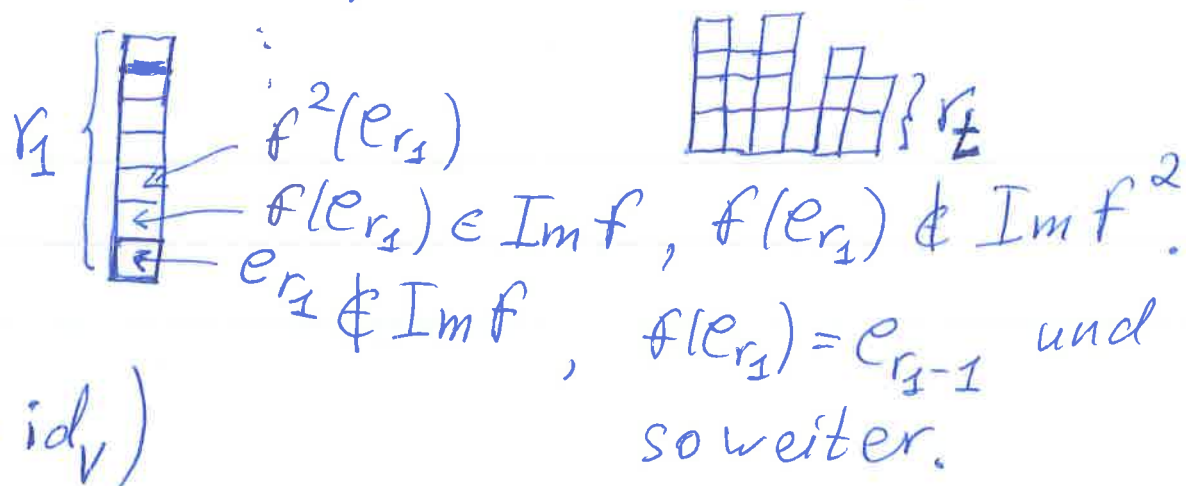 r₁
f²(e_{r₁})
r_t
f(e_{r₁}) ∈ Im f, f(e_{r₁}) ∉ Im f².
e_{r₁} ∉ Im f, f(e_{r₁}) = e_{r₁-1} und
id_V) so weiter.